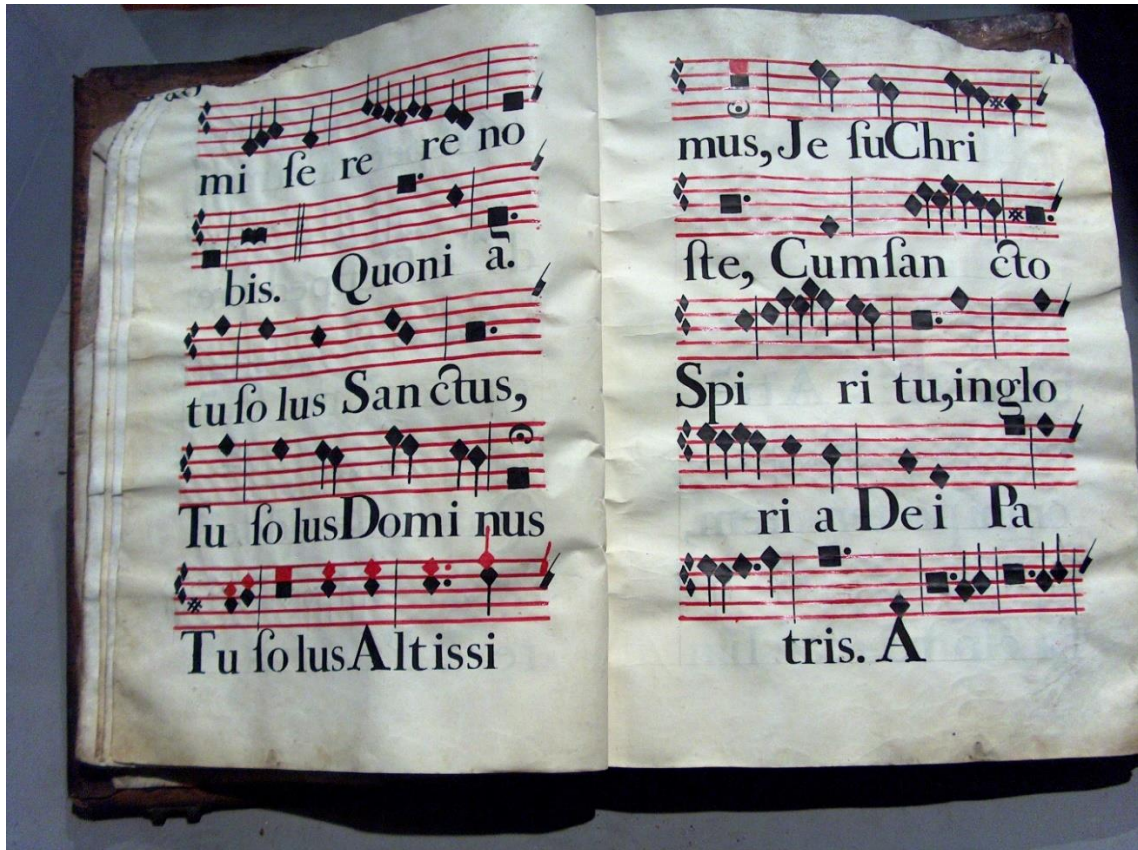 mi ſe re re no
bis. Quoni a.
tu ſo lus Sanctus,
Tu ſo lus Domi nus
Tu ſo lus Altissi
mus, Je ſu Chri
ſte, Cum ſan cto
Spi ri tu, in glo
ri a De i Pa
tris. A